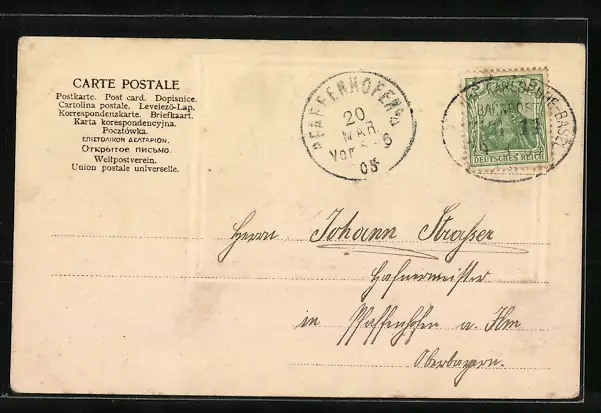 CARTE POSTALE
Postkarte. Post card. Dopisnice.
Cartolina postale. Levelező-Lap.
Korrespondenzkarte. Briefkaart.
Karta korespondencyjna.
Pocztówka.
ΕΠΙΣΤΟΛΙΚΟΝ ΔΕΛΤΑΡΙΟΝ.
Открытое письмо.
Weltpostverein.
Union postale universelle.
PFAFFENHOFEN
20
MAR.
Vor 5-6
05
KARLSRUHE-BASEL
BAHNPOST
DEUTSCHES REICH
Herrn Johann Straßer
Hafnermeister
in Pfaffenhofen a. Ilm
Oberbayern.